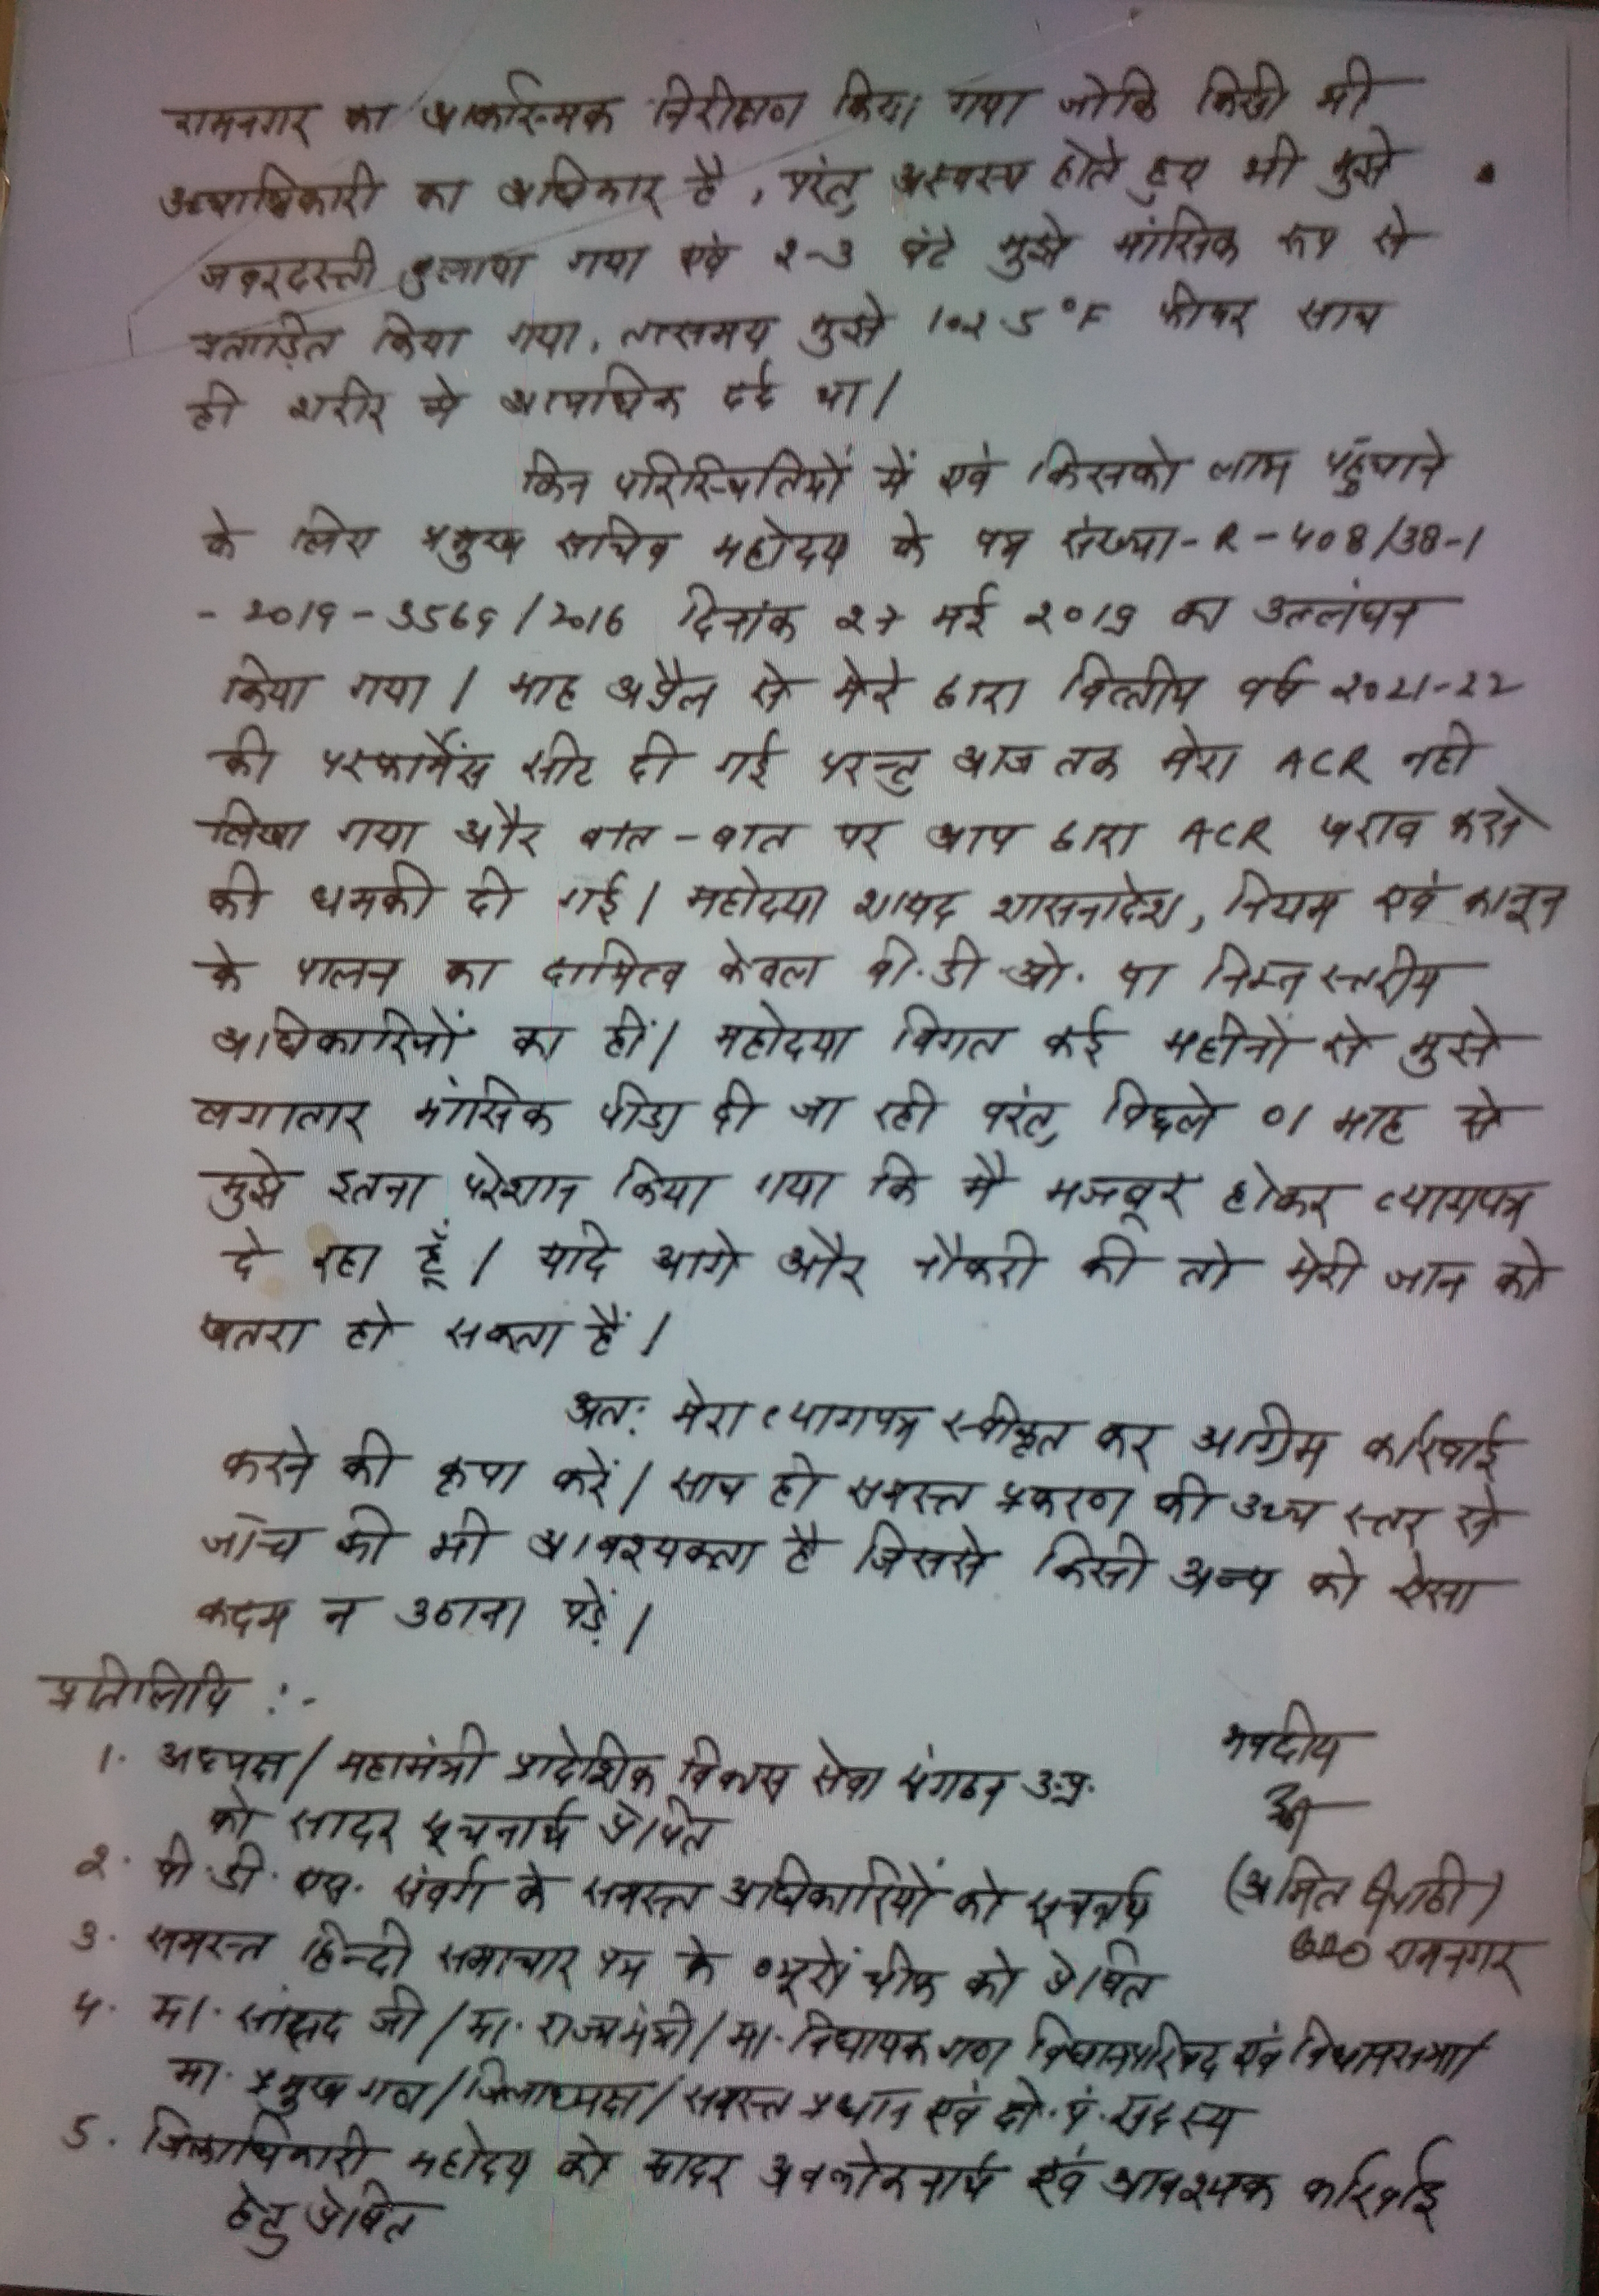 रामनगर का आकस्मिक निरीक्षण किया गया जोकि किसी भी
उच्चाधिकारी का अधिकार है, परंतु अस्वस्थ होते हुए भी मुझे
जबरदस्ती बुलाया गया एवं २-३ घंटे मुझे मांसिक रूप से
प्रताड़ित किया गया, तत्समय मुझे 102.5°F फीवर साथ
ही शरीर मे अत्याधिक दर्द था।
किन परिस्थितियों में एवं किसको लाभ पहुँचाने
के लिए प्रमुख सचिव महोदय के पत्र संख्या-R-408/38-1
-2019-3569/2016 दिनांक २७ मई २०१9 का उल्लंघन
किया गया। माह अप्रैल से मेरे द्वारा वित्तीय वर्ष २०21-22
की परफार्मेंस सीट दी गई परन्तु आज तक मेरा ACR नही
लिखा गया और बात-बात पर आप द्वारा ACR खराब करने
की धमकी दी गई। महोदया शायद शासनादेश, नियम एवं कानून
के पालन का दायित्व केवल बी.डी.ओ. या निम्न स्तरीय
अधिकारियों का हीं। महोदया विगत कई महीनों से मुझे
लगातार मांसिक पीड़ा दी जा रही परंतु पिछले ०1 माह से
मुझे इतना परेशान किया गया कि मै मजबूर होकर त्यागपत्र
दे रहा हूँ। यदि आगे और नौकरी की तो मेरी जान को
खतरा हो सकता हैं।
अत: मेरा त्यागपत्र स्वीकृत कर अग्रिम कार्रवाई
करने की कृपा करें। साथ ही समस्त प्रकरण की उच्च स्तर से
जाँच की भी आवश्यकता है जिससे किसी अन्य को ऐसा
कदम न उठाना पड़ें।
प्रतिलिपि :-
1. अध्यक्ष/महामंत्री प्रादेशिक विकास सेवा संगठन उ.प्र.
को सादर सूचनार्थ प्रेषित
२. पी.डी.एस. संवर्ग के समस्त अधिकारियों को सूचनार्थ
३. समस्त हिन्दी समाचार पत्र के ब्यूरों चीफ को प्रेषित
४. मा. सांसद जी/मा. राज्यमंत्री/मा. विधायक गण विधानपरिषद एवं विधानसभा/
मा. प्रमुख गण/जिलाध्यक्ष/समस्त प्रधान एवं क्षे.पं.सदस्य
5. जिलाधिकारी महोदय को सादर अवलोकनार्थ एवं आवश्यक कार्रवाई
हेतु प्रेषित
भवदीय
(अमित त्रिपाठी)
BDO रामनगर